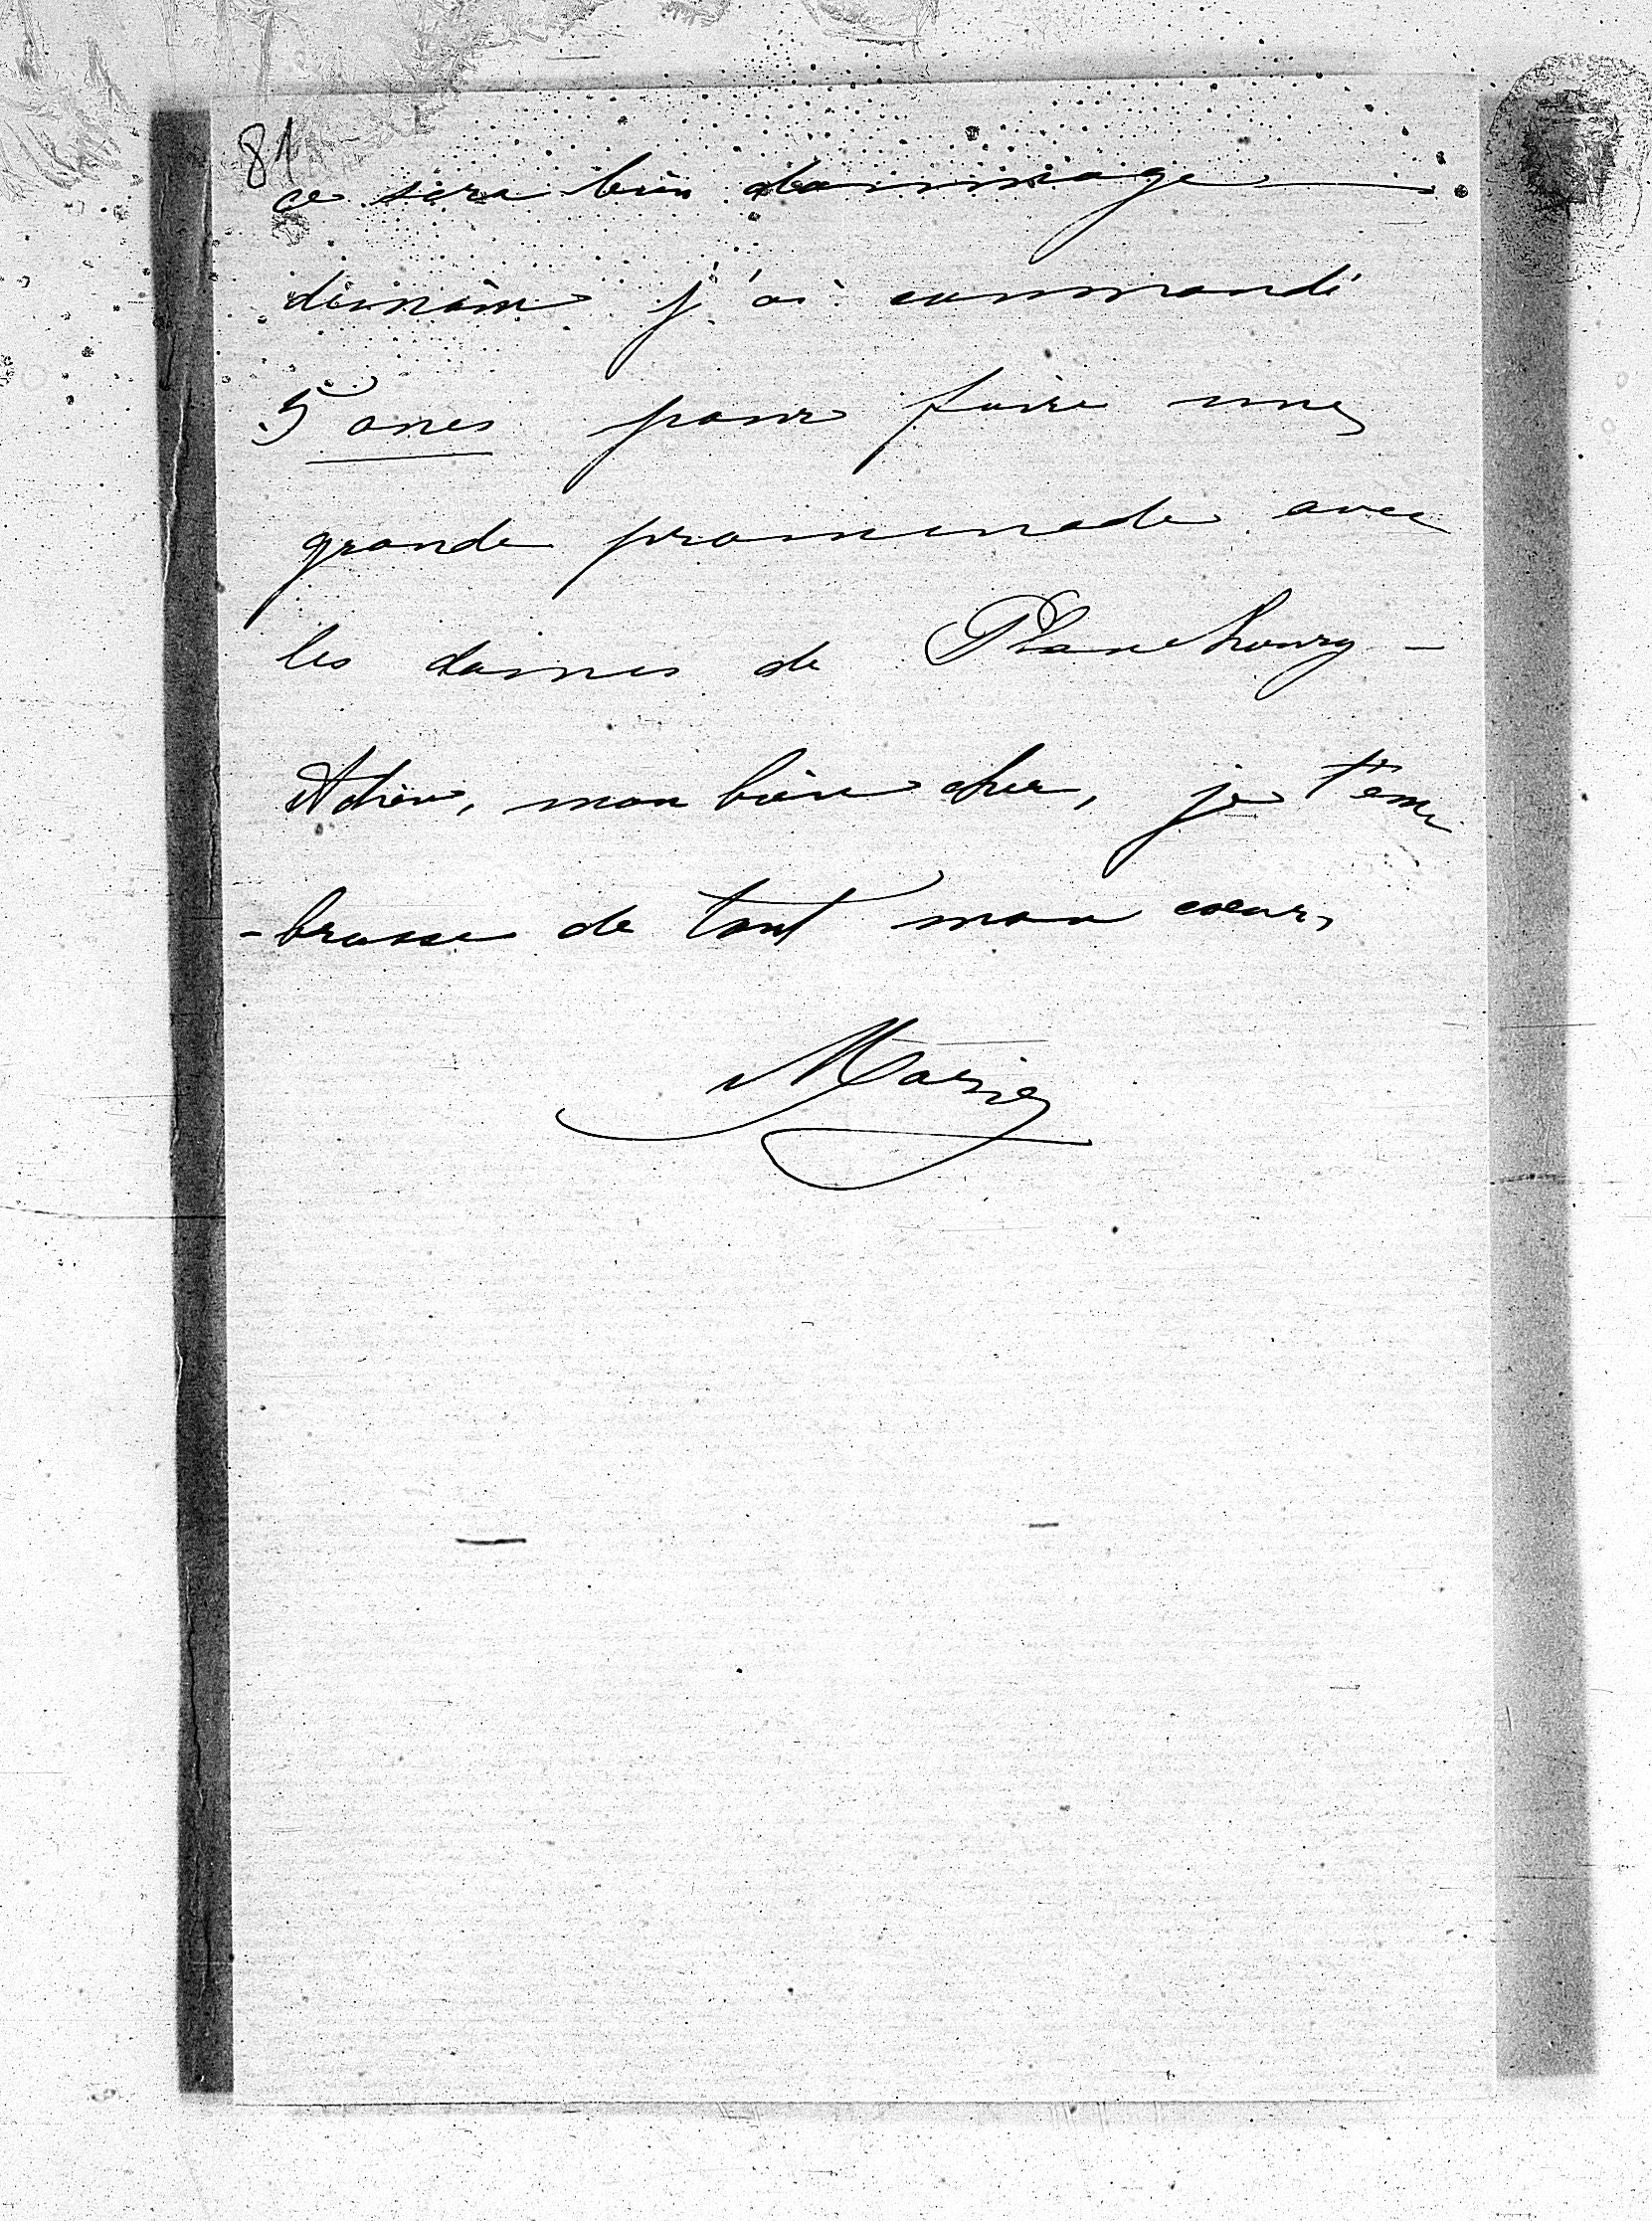 81
ce sera bien dommage
demain j'ai commandé
5 anes pour faire une
grande promenade avec
les dames de
Adieu, mon bien cher, je t'em
-brasse de tout mon coeur,
Marie